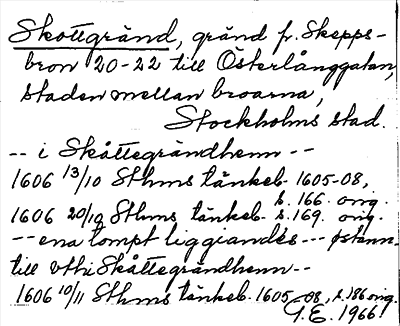 Skottgränd, gränd fr. Skepps-
bron 20-22 till Österlånggatan,
staden mellan broarna,
Stockholms stad.
-- i Skåttegrändhenn --
1606 13/10 Sthms tänkeb. 1605-08,
s. 166. orig.
1606 20/10 Sthms tänkeb. s. 169. orig.
-- ena tompt liggiandes --- östann-
till vthi Skåttegrändhenn --
1606 10/11 Sthms tänkeb. 1605-08, s. 186 orig.
G.E. 1966.